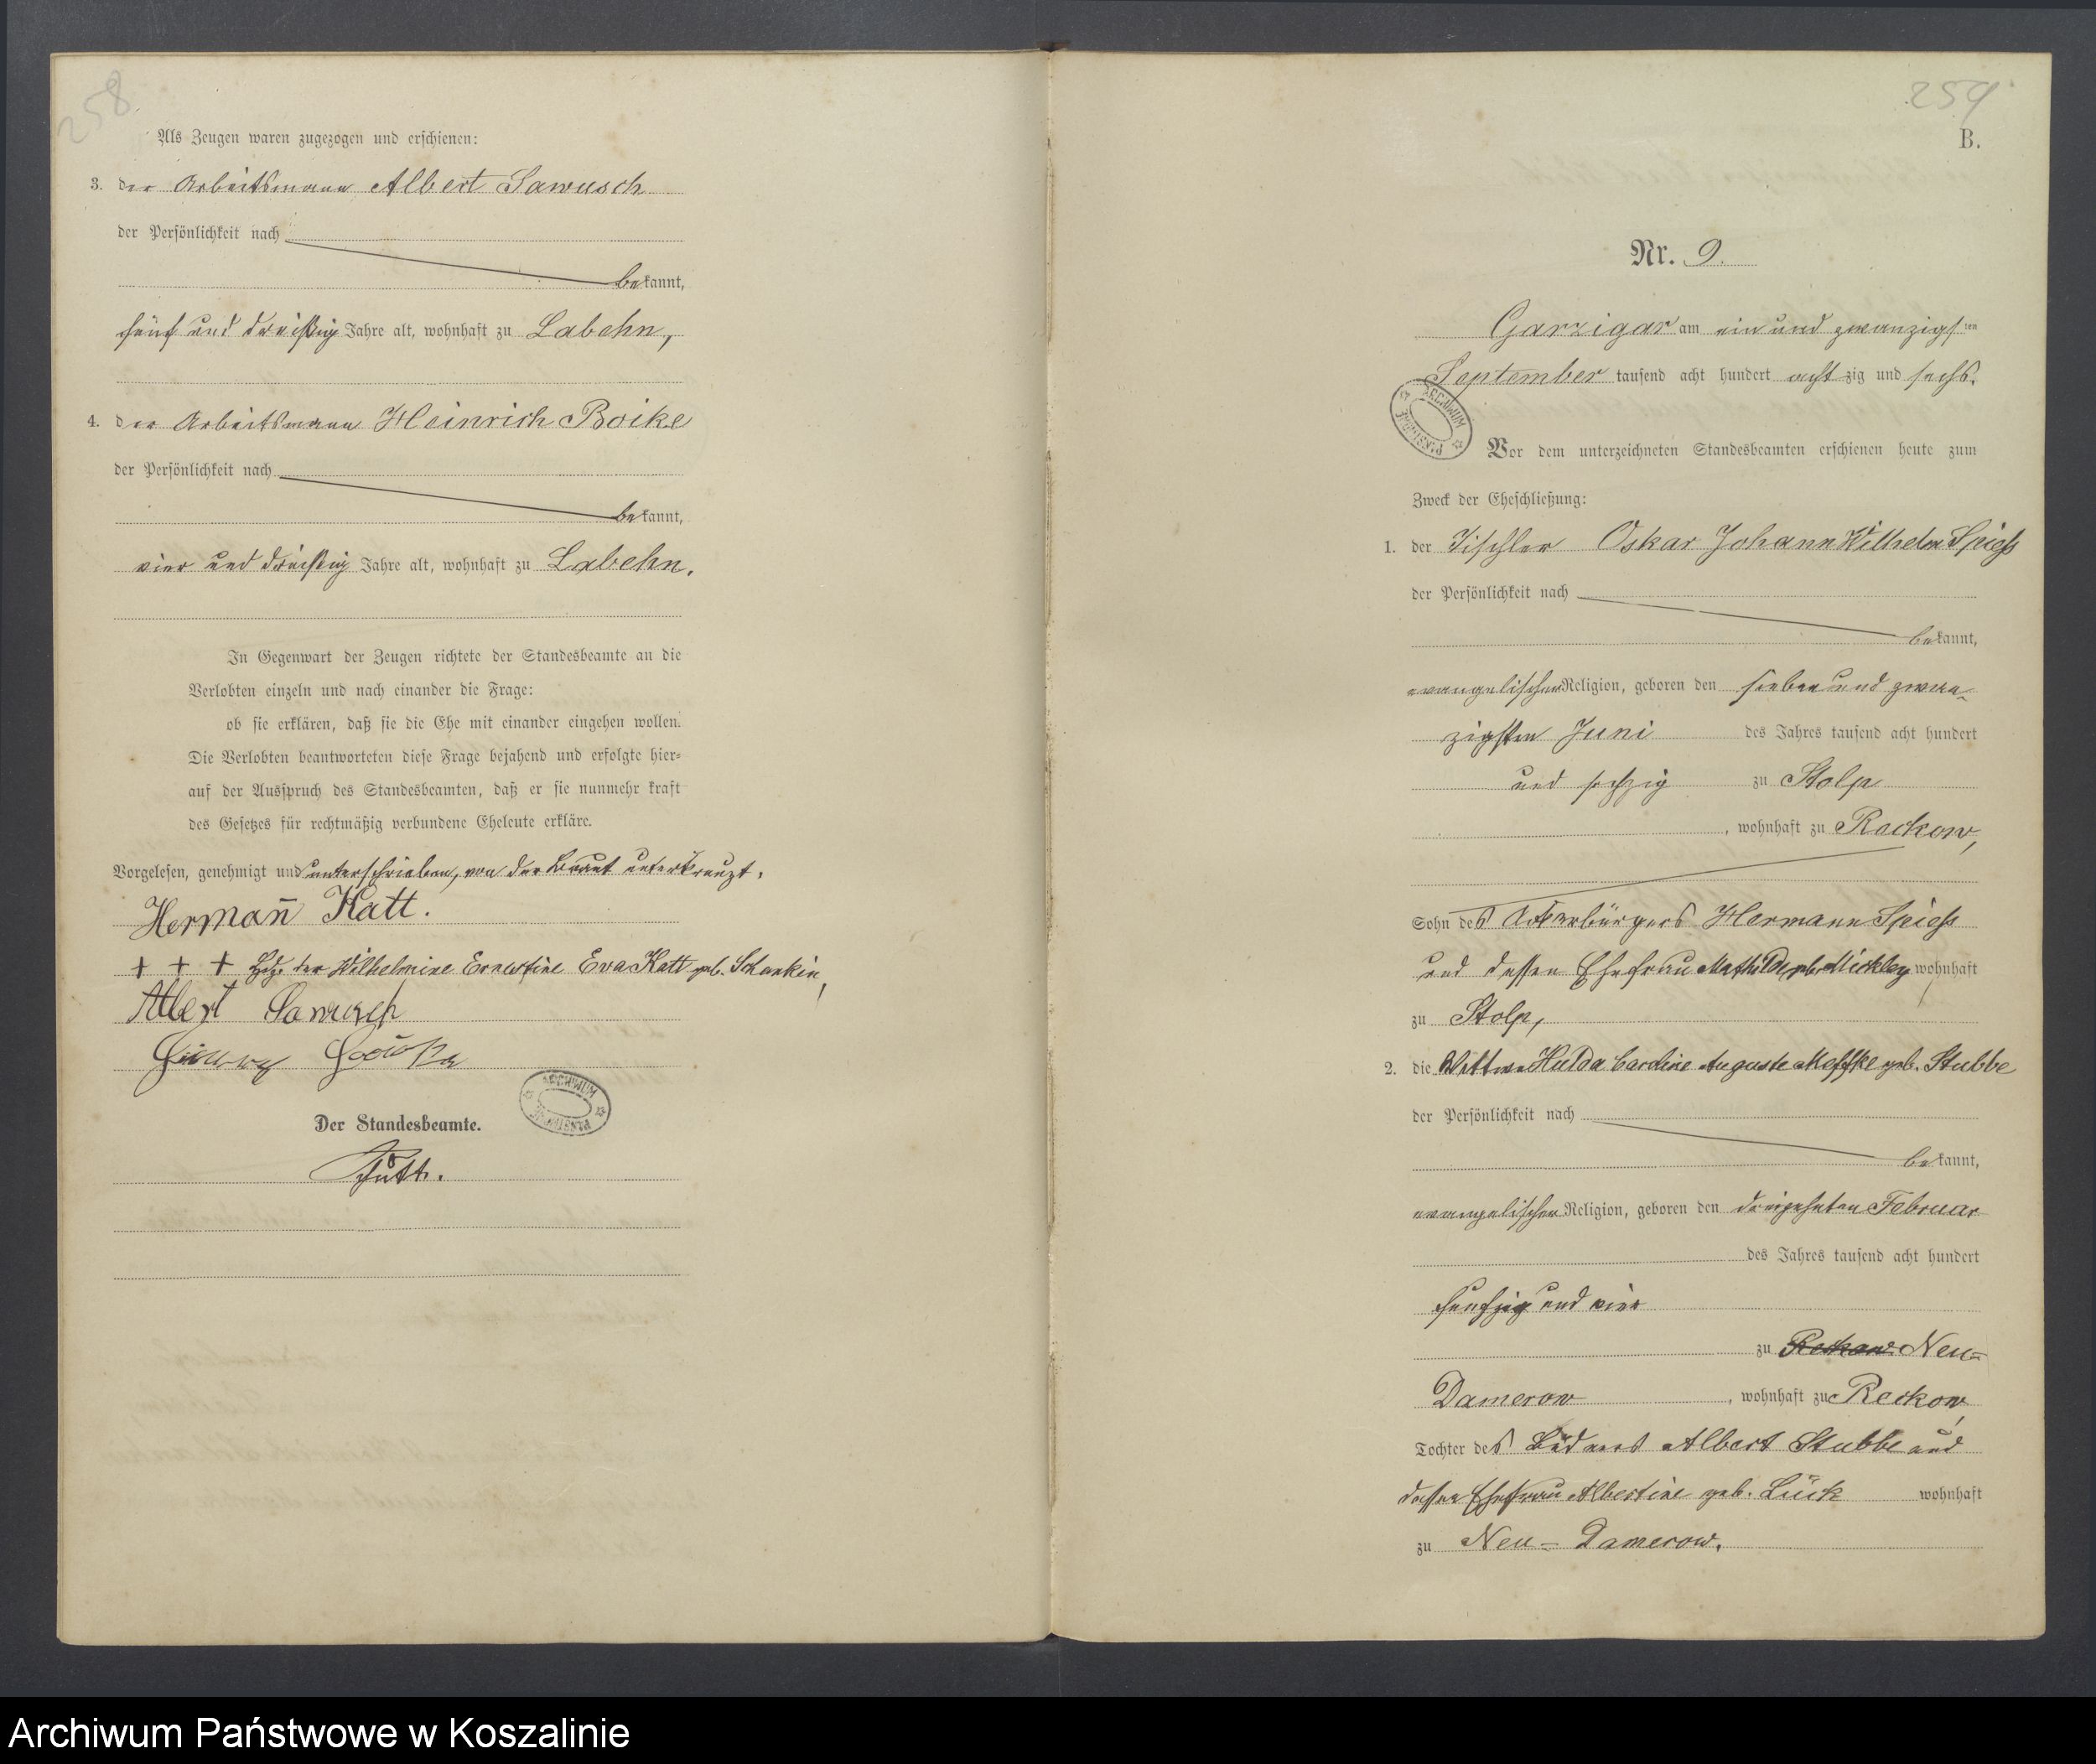 258
Als Zeugen waren zugezogen und erschienen:
3. der Arbeitsmann Albert Sawusch
der Persönlichkeit nach
bekannt,
fünf und dreißig Jahre alt, wohnhaft zu Labehn,
4. der Arbeitsmann Heinrich Boike
der Persönlichkeit nach
bekannt,
vier und dreißig Jahre alt, wohnhaft zu Labehn.
In Gegenwart der Zeugen richtete der Standesbeamte an die
Verlobten einzeln und nach einander die Frage:
ob sie erklären, daß sie die Ehe mit einander eingehen wollen.
Die Verlobten beantworteten diese Frage bejahend und erfolgte hier-
auf der Ausspruch des Standesbeamten, daß er sie nunmehr kraft
des Gesetzes für rechtmäßig verbundene Eheleute erkläre.
Vorgelesen, genehmigt und unterschrieben, von der Braut unterkreuzt.
Hermann Katt.
+ + + Hdz. der Wilhelmine Ernestine Eva Katt geb. Schankin,
Albert Sawusch
Der Standesbeamte.
ARCHIWUM
259
B.
Nr. 9.
Garzigar am ein und zwanzigsten
September tausend acht hundert achtzig und sechs.
ARCHIWUM
Vor dem unterzeichneten Standesbeamten erschienen heute zum
Zweck der Eheschließung:
1. der Tischler Oskar Johann Wilhelm Spieß
der Persönlichkeit nach
bekannt,
evangelischer Religion, geboren den sieben und zwan-
zigsten Juni des Jahres tausend acht hundert
und sechzig zu Stolp
, wohnhaft zu Reckow,
Sohn des Ackerbürgers Hermann Spieß
und dessen Ehefrau Mathilde geb. Mickley wohnhaft
zu Stolp,
2. die Wittwe Hulda Caroline Auguste Meffke geb. Stubbe
der Persönlichkeit nach
bekannt,
evangelischer Religion, geboren den dreizehnten Februar
des Jahres tausend acht hundert
fünfzig und vier
zu Reckow Neu=
Damerow, wohnhaft zu Reckow,
Tochter des Büdners Albert Stubbe und
dessen Ehefrau Albertine geb. Lück wohnhaft
zu Neu=Damerow.
Archiwum Państwowe w Koszalinie